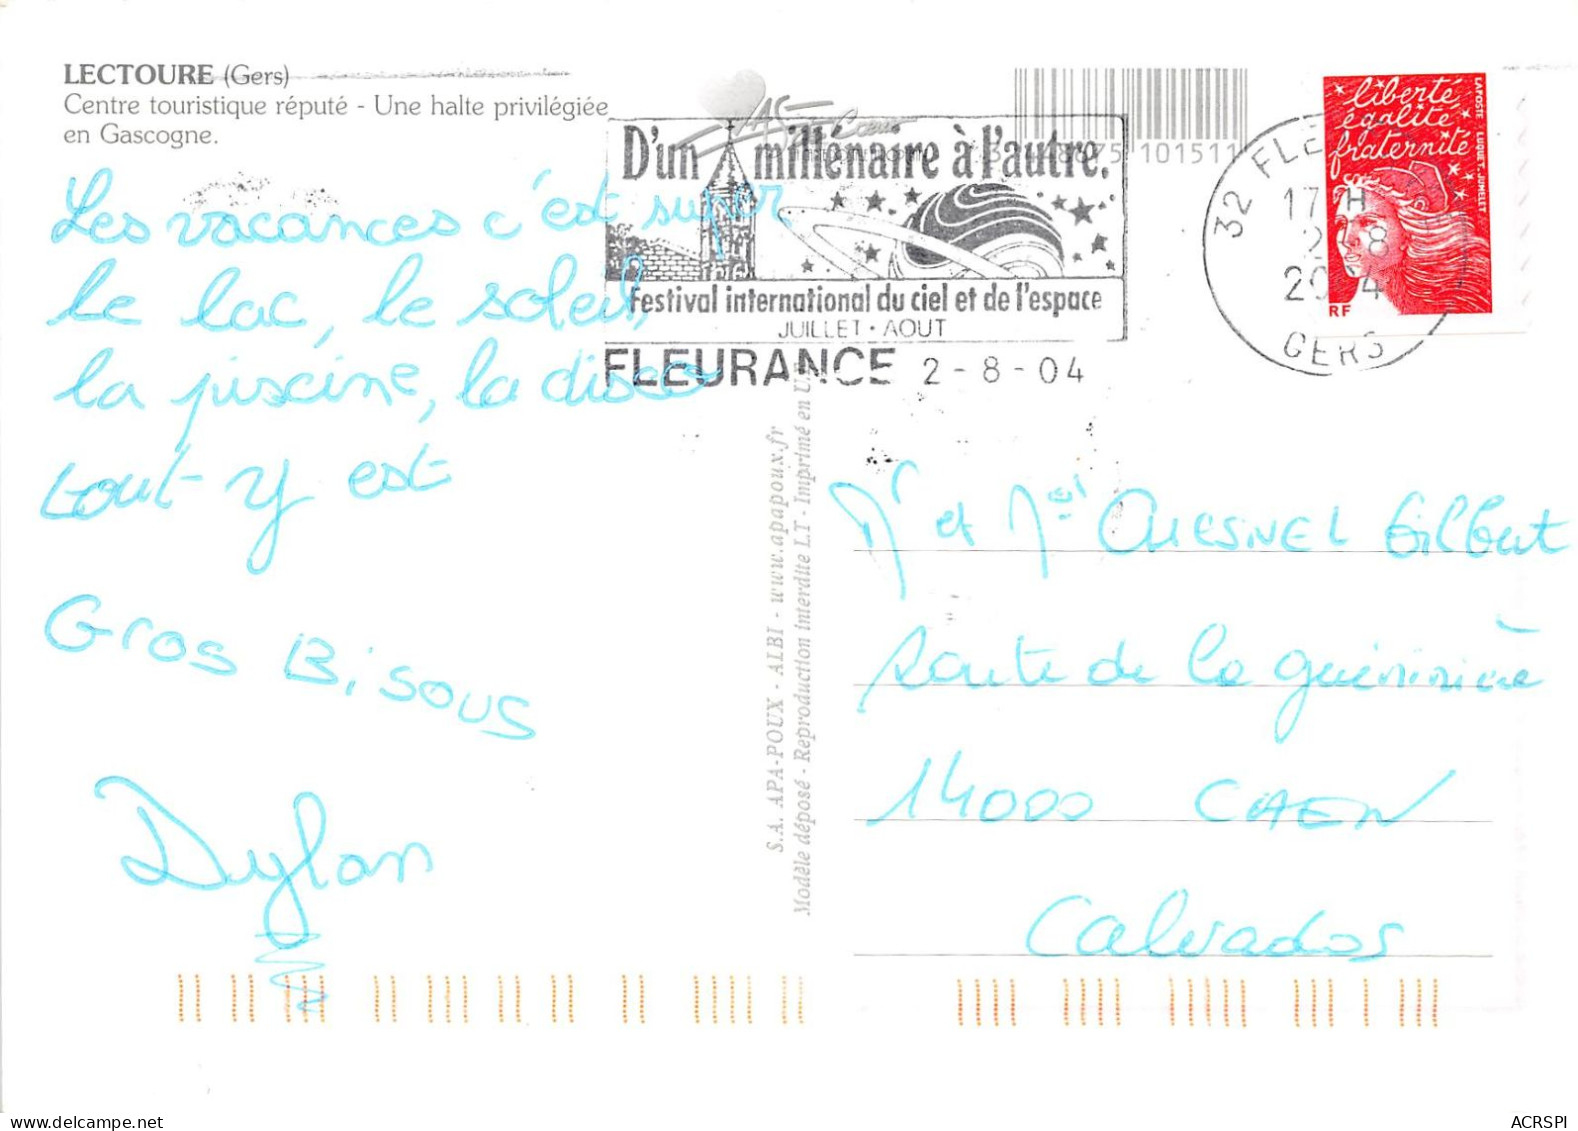 LECTOURE (Gers)
Centre touristique réputé - Une halte privilégiée
en Gascogne.
Les vacances c'est super
le lac, le soleil,
la piscine, la disco
tout y est
Gros Bisous
Dylan
D'un millénaire à l'autre.
Festival international du ciel et de l'espace
JUILLET · AOUT
FLEURANCE 2 - 8 - 04
101511
liberté
égalité
fraternité
LA POSTE LUQUET-JUMELET
RF
32 FLE
17 H
2 8
20 4
GERS
S.A. APA-POUX - ALBI - www.apapoux.fr
Modèle déposé - Reproduction interdite LT - Imprimé en U.
Mr et Me QUESNEL Gilbert
route de la guérinière
14000 CAEN
Calvados
ACRSPI